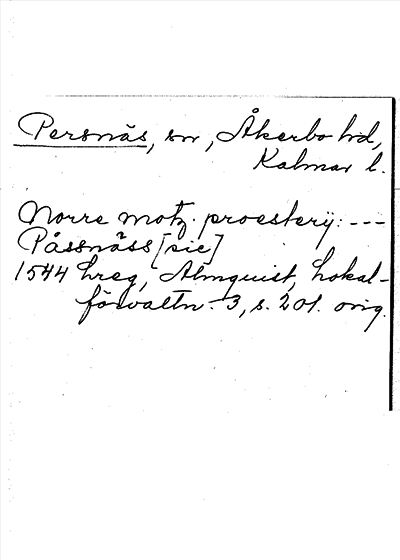 Persnäs, sn, Åkerbo hd,
Kalmar l.
Norre motz. proesterij: ---
Påssnäss [sic]
1544 hreg, Almquist, Lokal-
förvaltn. 3, s. 201. orig.